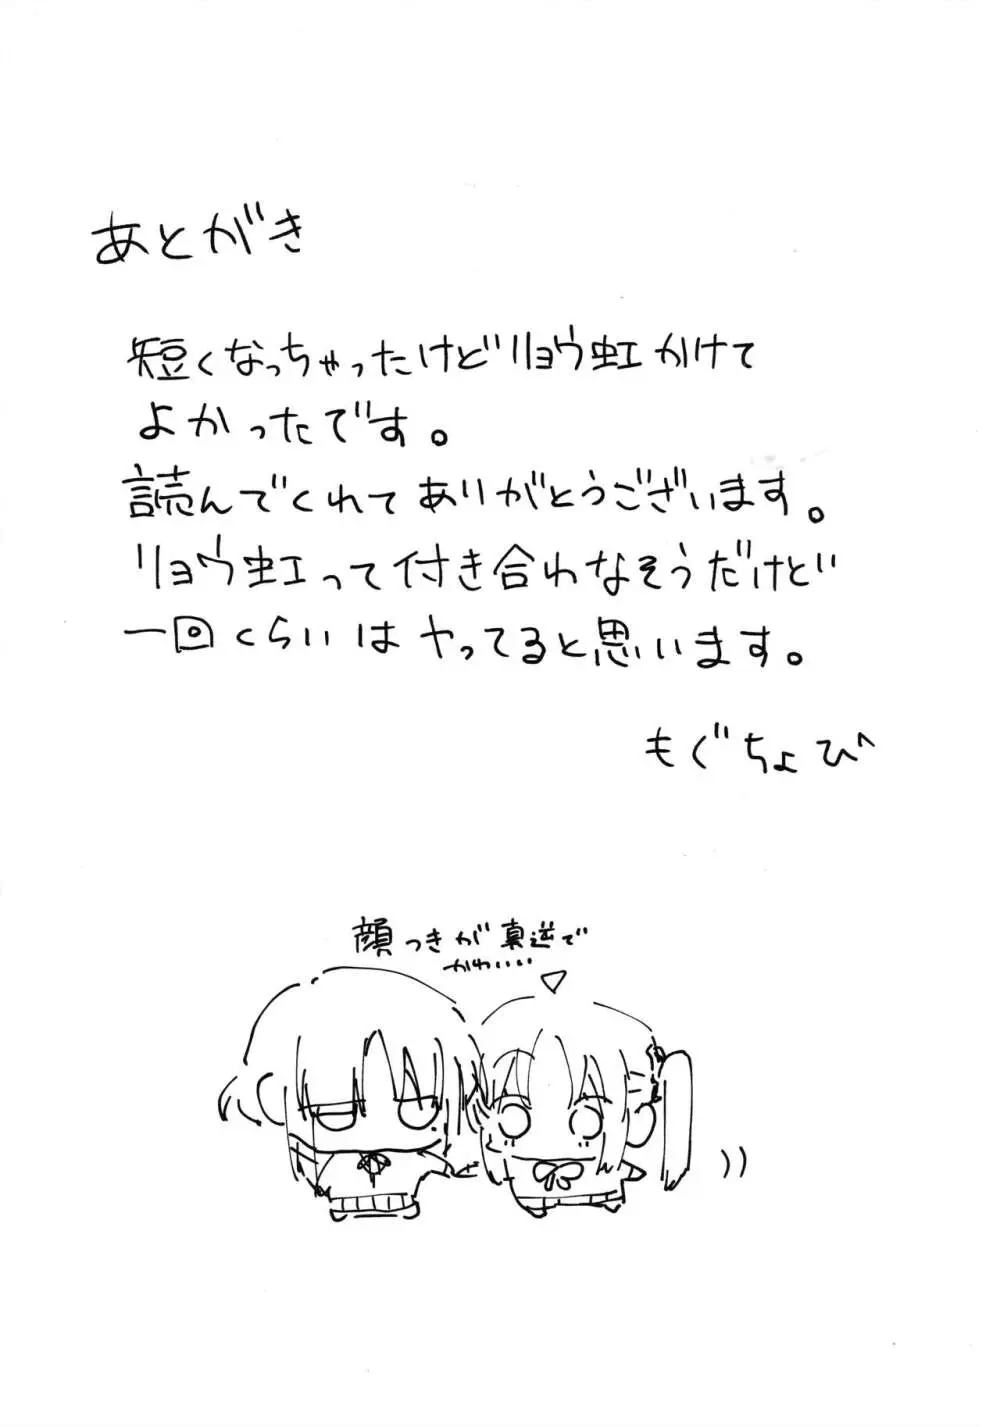 あとがき
短くなっちゃったけどリョウ虹かけて
よかったです。
読んでくれてありがとうございます。
リョウ虹って付き合わなそうだけど
一回くらいはヤってると思います。
もぐちょび
顔つきが真逆で
かわいい…